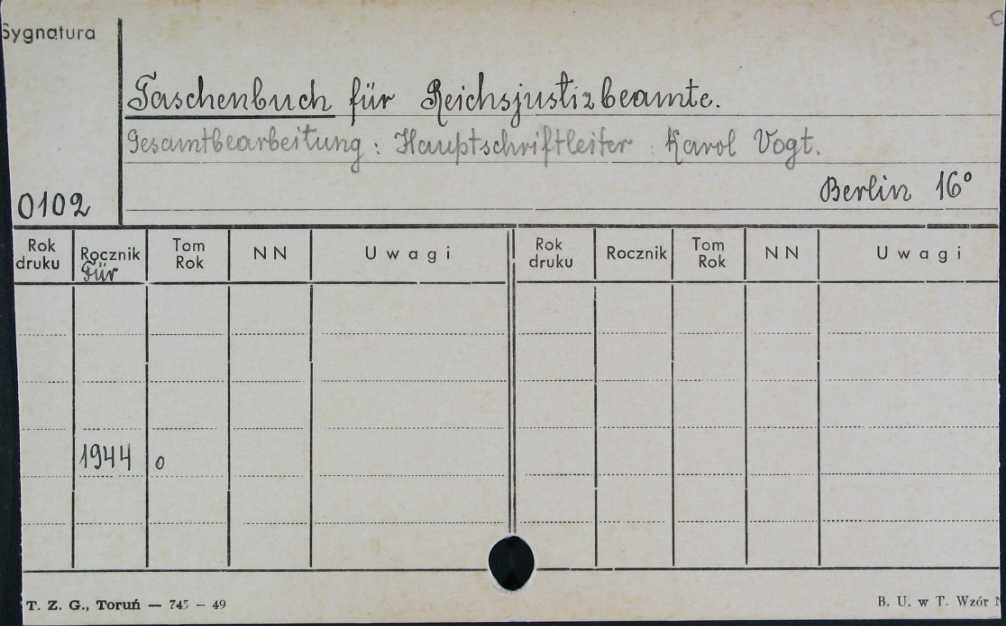 Sygnatura
Taschenbuch für Reichsjustizbeamte.
Gesamtbearbeitung: Hauptschriftleiter: Karol Vogt.
0102 Berlin 16°
Rok druku Rocznik Für Tom Rok N N Uwagi Rok druku Rocznik Tom Rok N N Uwagi
1944 o
T. Z. G., Toruń — 745 — 49 B. U. w T. Wzór